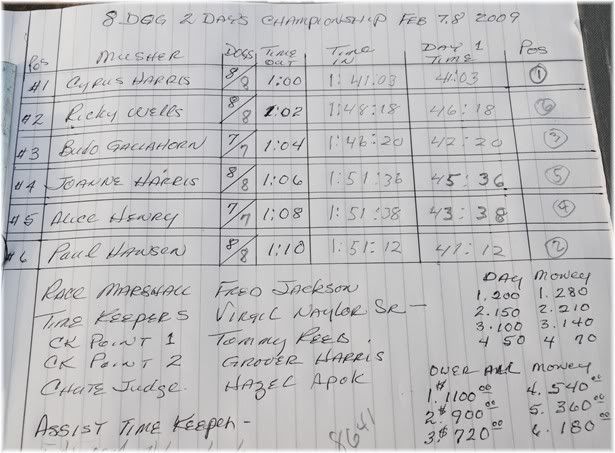 8 DGG 2 DAYS CHAMPIONSHIP FEB 7.8 2009
POS MUSHER DOGS TIME OUT TIME IN DAY 1 TIME POS
#1 CYRUS HARRIS 8/8 1:00 1:41:03 41:03 1
#2 RICKY WELLS 8/8 1:02 1:48:18 46:18 6
#3 BUDO GALLAHORN 7/7 1:04 1:46:20 42:20 3
#4 JOANNE HARRIS 8/8 1:06 1:51:36 45:36 5
#5 ALICE HENRY 7/7 1:08 1:51:38 43:38 4
#6 PAUL HANSEN 8/8 1:10 1:51:12 41:12 2
RACE MARSHALL FRED JACKSON
TIME KEEPERS VIRGIL NAYLOR SR —
CK POINT 1 TOMMY REED.
CK POINT 2 GROVER HARRIS
CHUTE JUDGE. HAZEL APOK
ASSIST TIME KEEPER -
8641
DAY MONEY
1. 200 1. 280
2. 150 2. 210
3. 100 3. 140
4 50 4 70
OVER ALL MONEY
1. $1100.00 4. 540.00
2. $900.00 5. 360.00
3. $720.00 6. 180.00